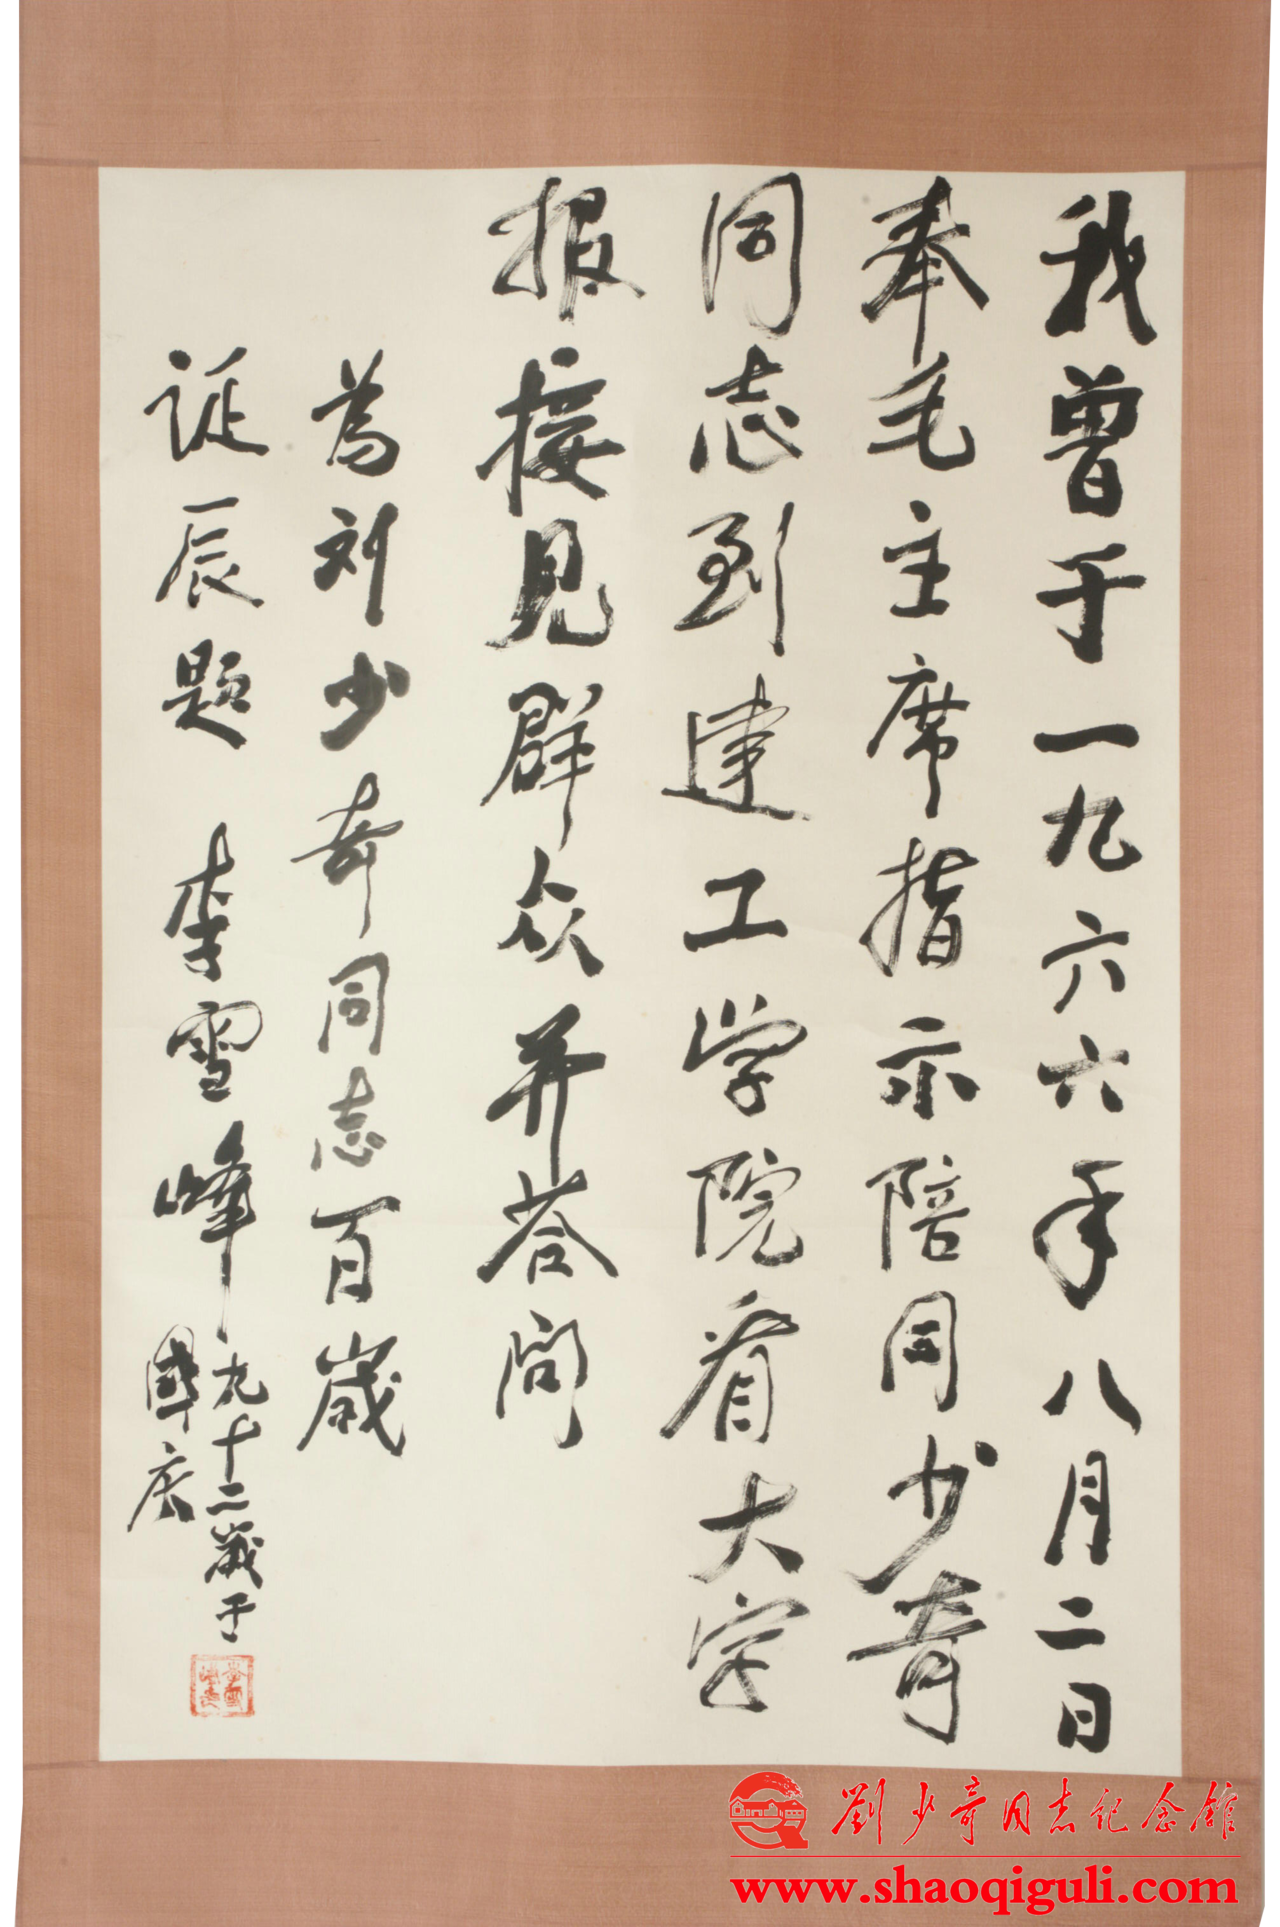 我曾于一九六六年八月二日
奉毛主席指示陪同少奇
同志到建工学院看大字
报接见群众并荅问
为刘少奇同志百岁
诞辰题 李雪峰
九十二岁于
國庆
劉少奇同志纪念馆
www.shaoqiguli.com